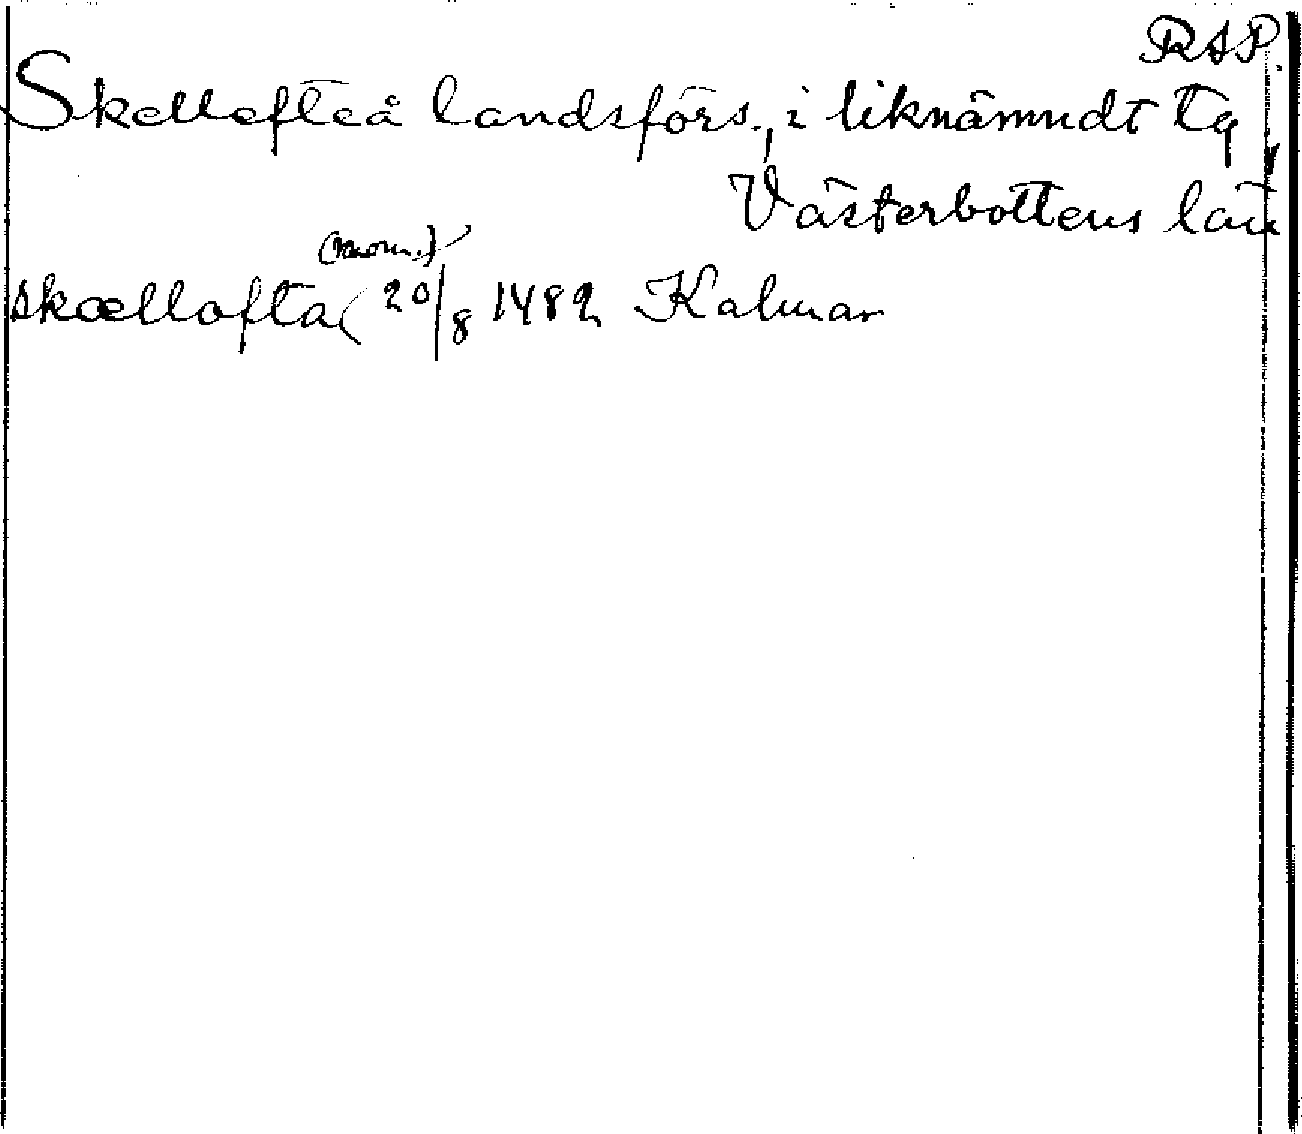 RAP.
Skellefteå landsförs., i liknämndt tg,
Västerbottens län
(nom.)
skællofta ( 20/8 1482 Kalmar